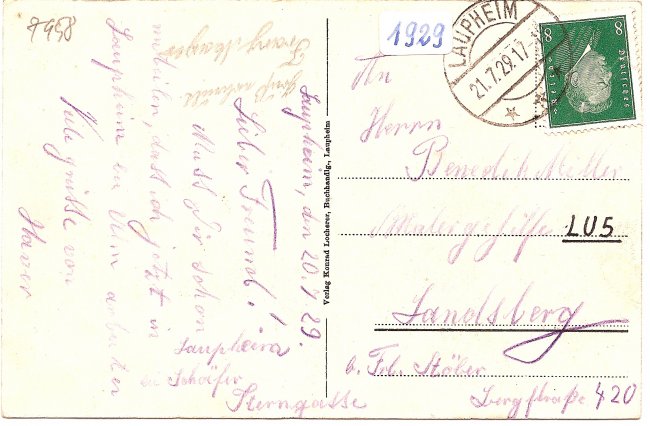 7958
1929
LAUPHEIM
21.7.29.17
8 8
Deutsches Reich
Franz Mayer
Laupheim den 20 7 29.
Lieber Freund!
Muss Dir schon
mitteilen, dass ich jetzt in
Laupheim bei arbeite
Viele Grüsse von
Xaver
Laupheim
bei Schäfer
Sterngasse
Verlag Konrad Locherer, Buchhandlg., Laupheim
An
Herrn
Benedikt Miller
Malergehilfe
LU5
Landsberg
b. Frl. Stöber
Bergstraße 420